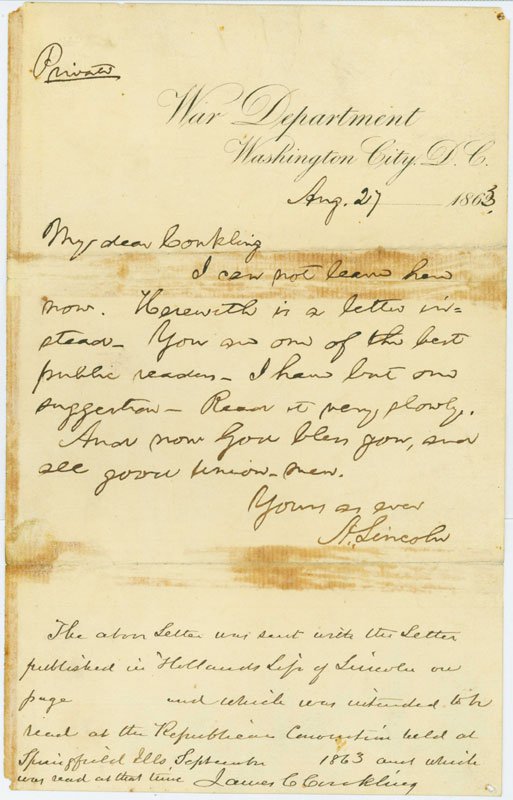 Private
War Department
Washington City, D.C.
Aug. 27 1863.
My dear Conkling
I can not leave here
now. Herewith is a letter in=
stead– You are one of the best
public readers– I have but one
suggestion– Read it very slowly.
And now God bless you, and
all good Union-men.
Yours as ever
A. Lincoln
The above Letter was sent with the Letter
published in Hollands Life of Lincoln on
page and which was intended to be
read at the Republican Convention held at
Springfield Ills September 1863 and which
was read at that time James C Conkling